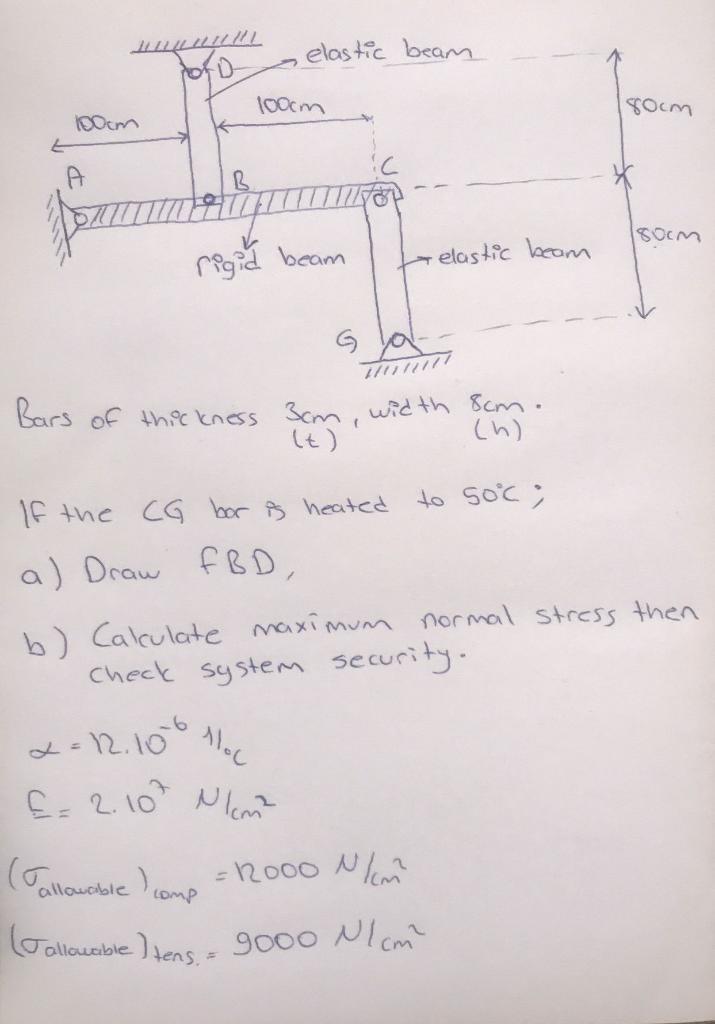 D
elastic beam
100cm
100cm
80cm
A
B
C
rigid beam
elastic beam
80cm
G
Bars of thickness 3cm, width 8cm.
(t) (h)
If the CG bar is heated to 50°C;
a) Draw FBD,
b) Calculate maximum normal stress then
check system security.
α = 12.10⁻⁶ 1/°C
E = 2.10⁷ N/cm²
(σallowable)comp = 12000 N/cm²
(σallowable)tens. = 9000 N/cm²